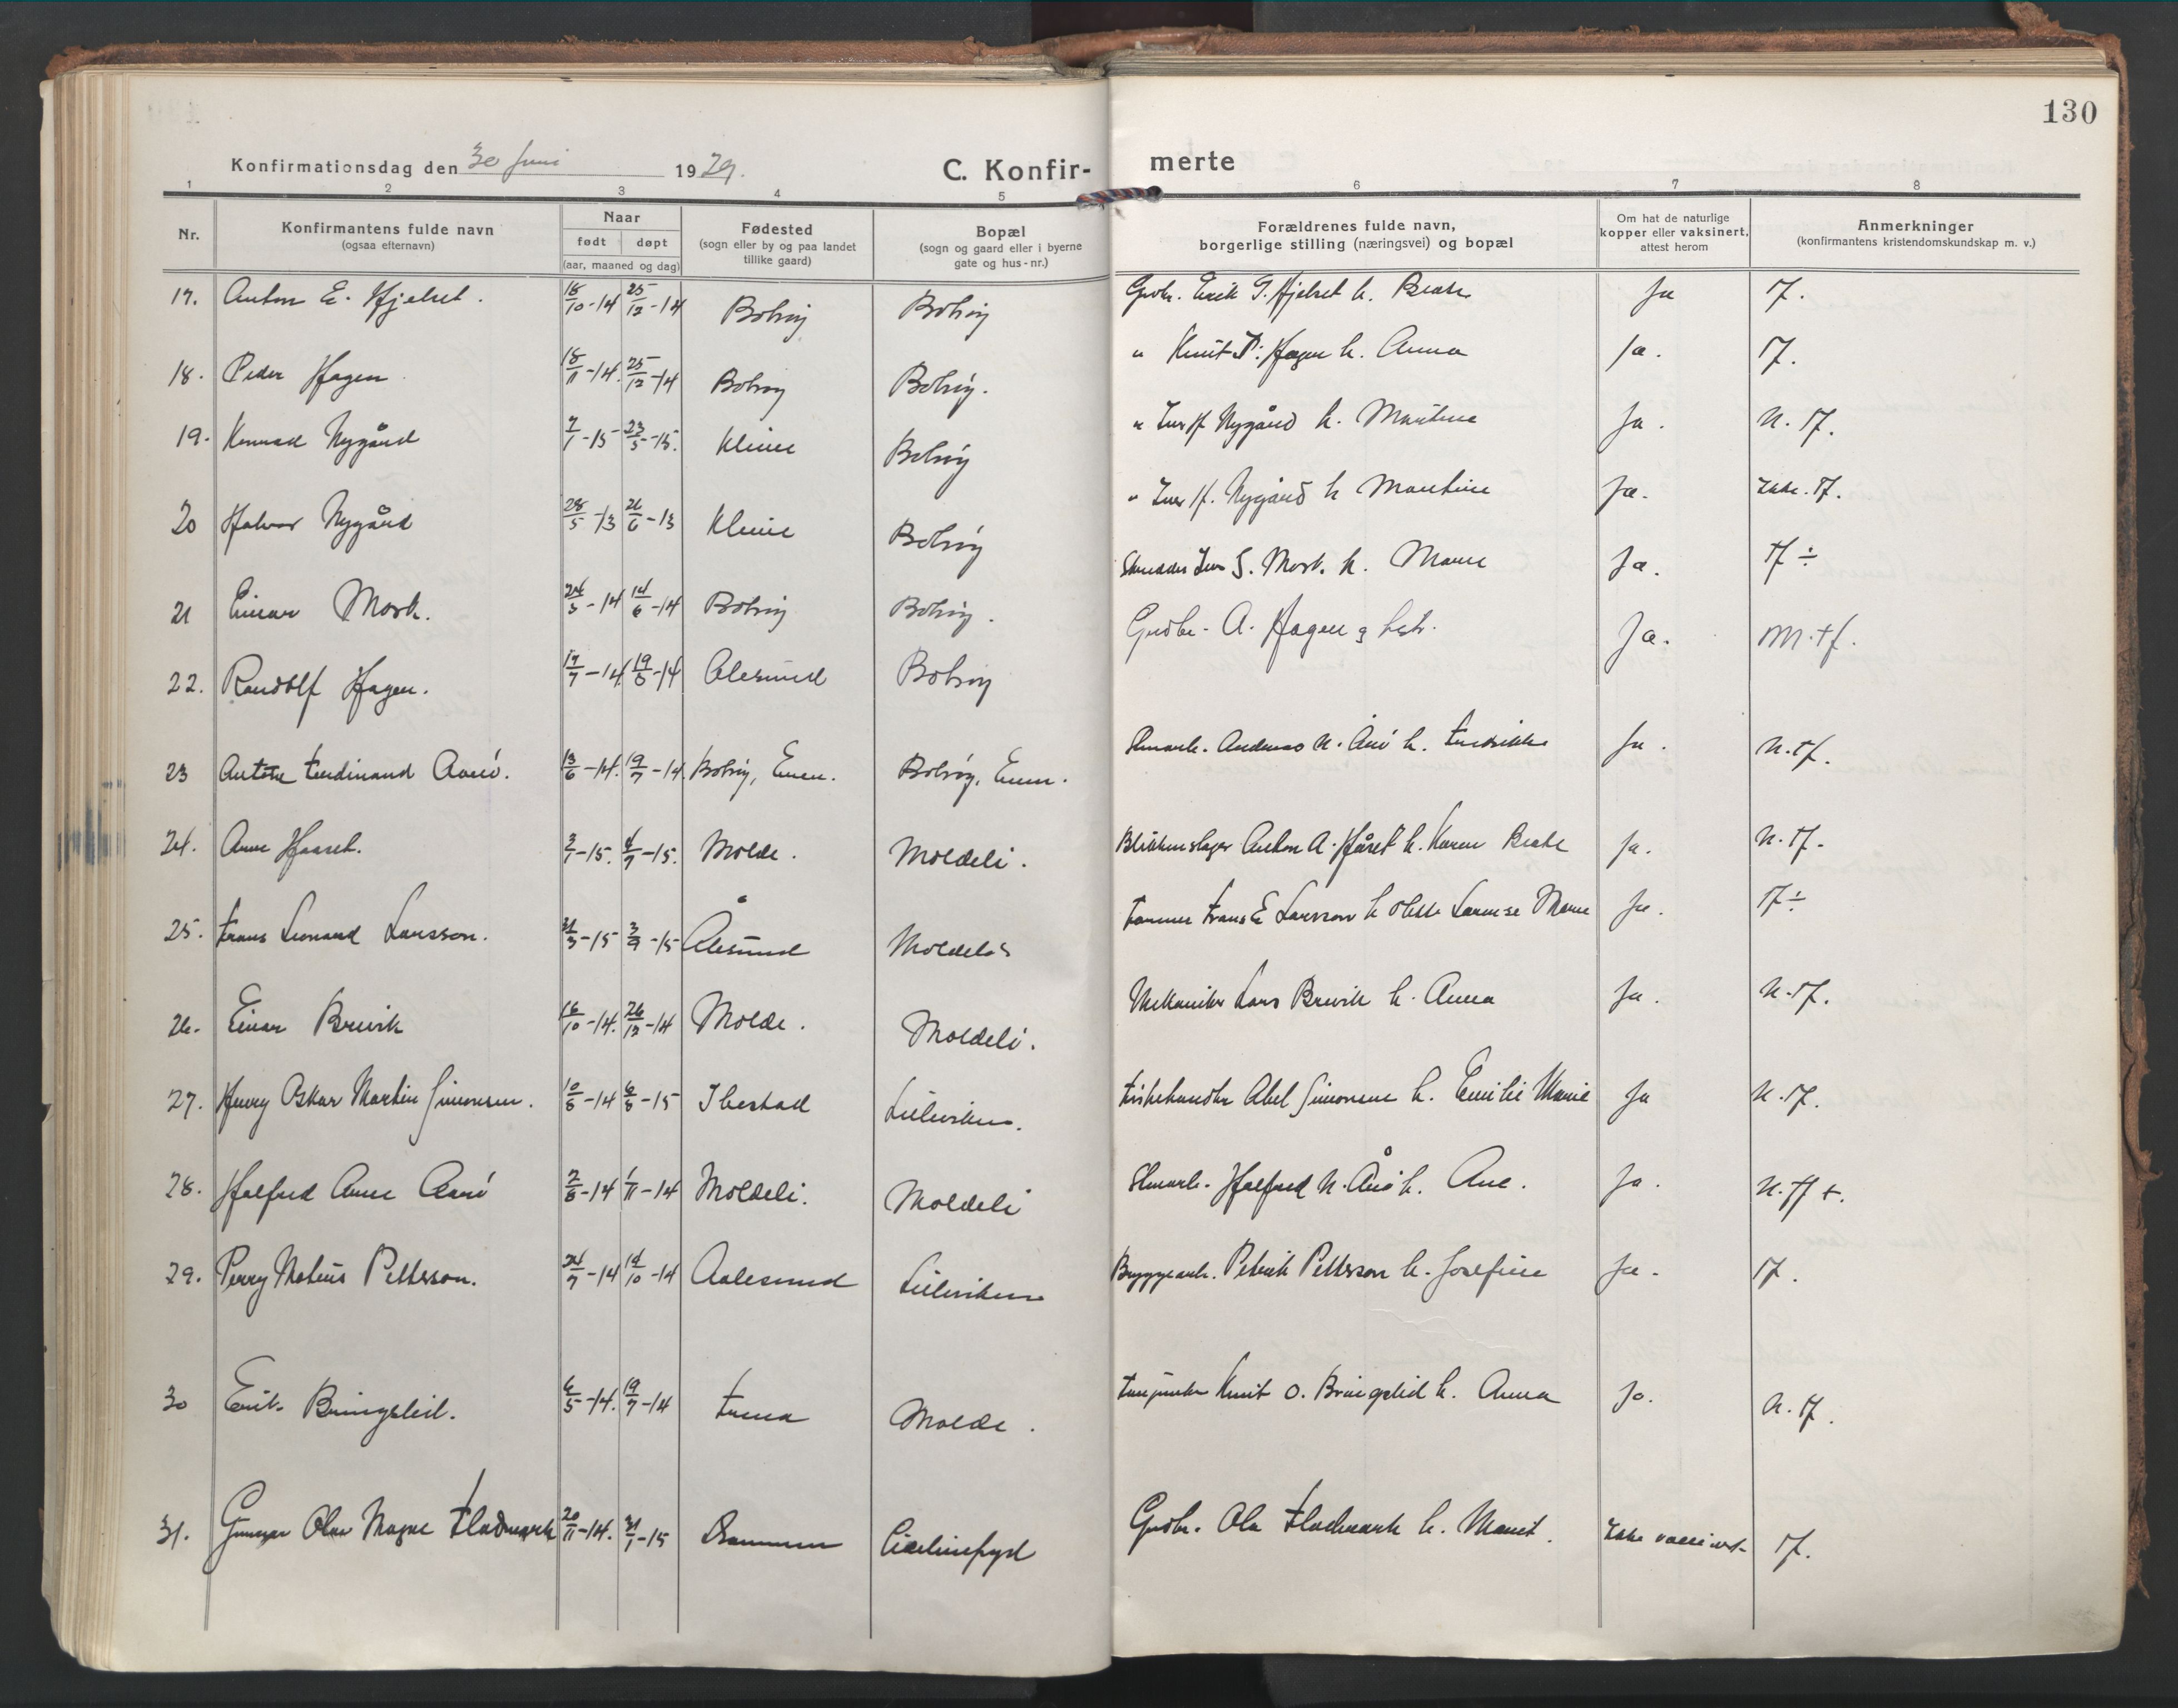 130
Konfirmationsdag den 30 Juni 1929.
C. Konfir-
merte
1 2 3 4 5 6 7 8
Nr.
Konfirmantens fulde navn
(ogsaa efternavn)
Naar
født døpt
(aar, maaned og dag)
Fødested
(sogn eller by og paa landet
tillike gaard)
Bopæl
(sogn og gaard eller i byerne
gate og hus-nr.)
Forældrenes fulde navn,
borgerlige stilling (næringsvei) og bopæl
Om hat de naturlige
kopper eller vaksinert,
attest herom
Anmerkninger
(konfirmantens kristendomskundskap m. v.)
17. Anton E. Hjelset. 18/10-14 25/12-14 Bolsøy Bolsøy Grdbr. Erik Hjelset h. Beate Ja
18. Peder Hagen 18/11-14. 25/12-14 Bolsøy Bolsøy. " Knut P. Hagen h. Anna Ja.
19. Konrad Nygård 7/1-15 23/5-15. Kleive Bolsøy " Iver H Nygård h. Martine Ja.
20 Halvor Nygård 28/5-13 26/6-13 Kleive Bolsøy " Iver H. Nygård h Martine Ja. Ikke
21 Einar Mork. 24/3-14 14/6-14 Bolsøy Bolsøy. Skredder Iver S. Mork. h. Marie Ja.
22. Randolf Hagen. 17/7-14 Ålesund Bolsøy Grdbr. A. Hagen Ja.
23 Ferdinand Aarø. 13/6-14. 19/7-14. Bolsøy, Bolsøy, Andreas N. Årø h. Fredrikke Ja.
24. Arne Haaset. 2/1-15. 4/7-15. Molde. Moldeli. Blikkenslager Anton A. Håset h. Karen Beate Ja.
25. Frans Leonard Larsson. 31/3-15 3/9-15 Ålesund Moldeli Frans E Larsson h Marie Ja.
26. Einar Brevik 16/10-14. 26/12-14 Molde. Moldeli. Mekaniker Lars Brevik h. Anna Ja.
27. Henry Oskar Martin Simonsen. 10/8-14 6/8-15 Ibestad Lilleviken. Fiskehandler Abel Simonsen h. Emilie Marie Ja
28. Halfred Arne Aarø 2/8-14 1/11-14 Moldeli. Moldeli Halfred N. Årø h. Ane. Ja.
29. Perry Mateus Petterson. 24/7-14 14/10-14 Aalesund Lilleviken Bryggearb. Petrik Petterson h. Josefine Ja.
30 Bringslid. 6/5-14. 19/7-14 Fræna Molde. Knut O. Bringslid h. Anna Ja.
31. Gunnar Olav Magne Fladmark 20/11-14. 31/1-15 Drammen Grdbr. Ola Fladmark h. Marit. Ikke